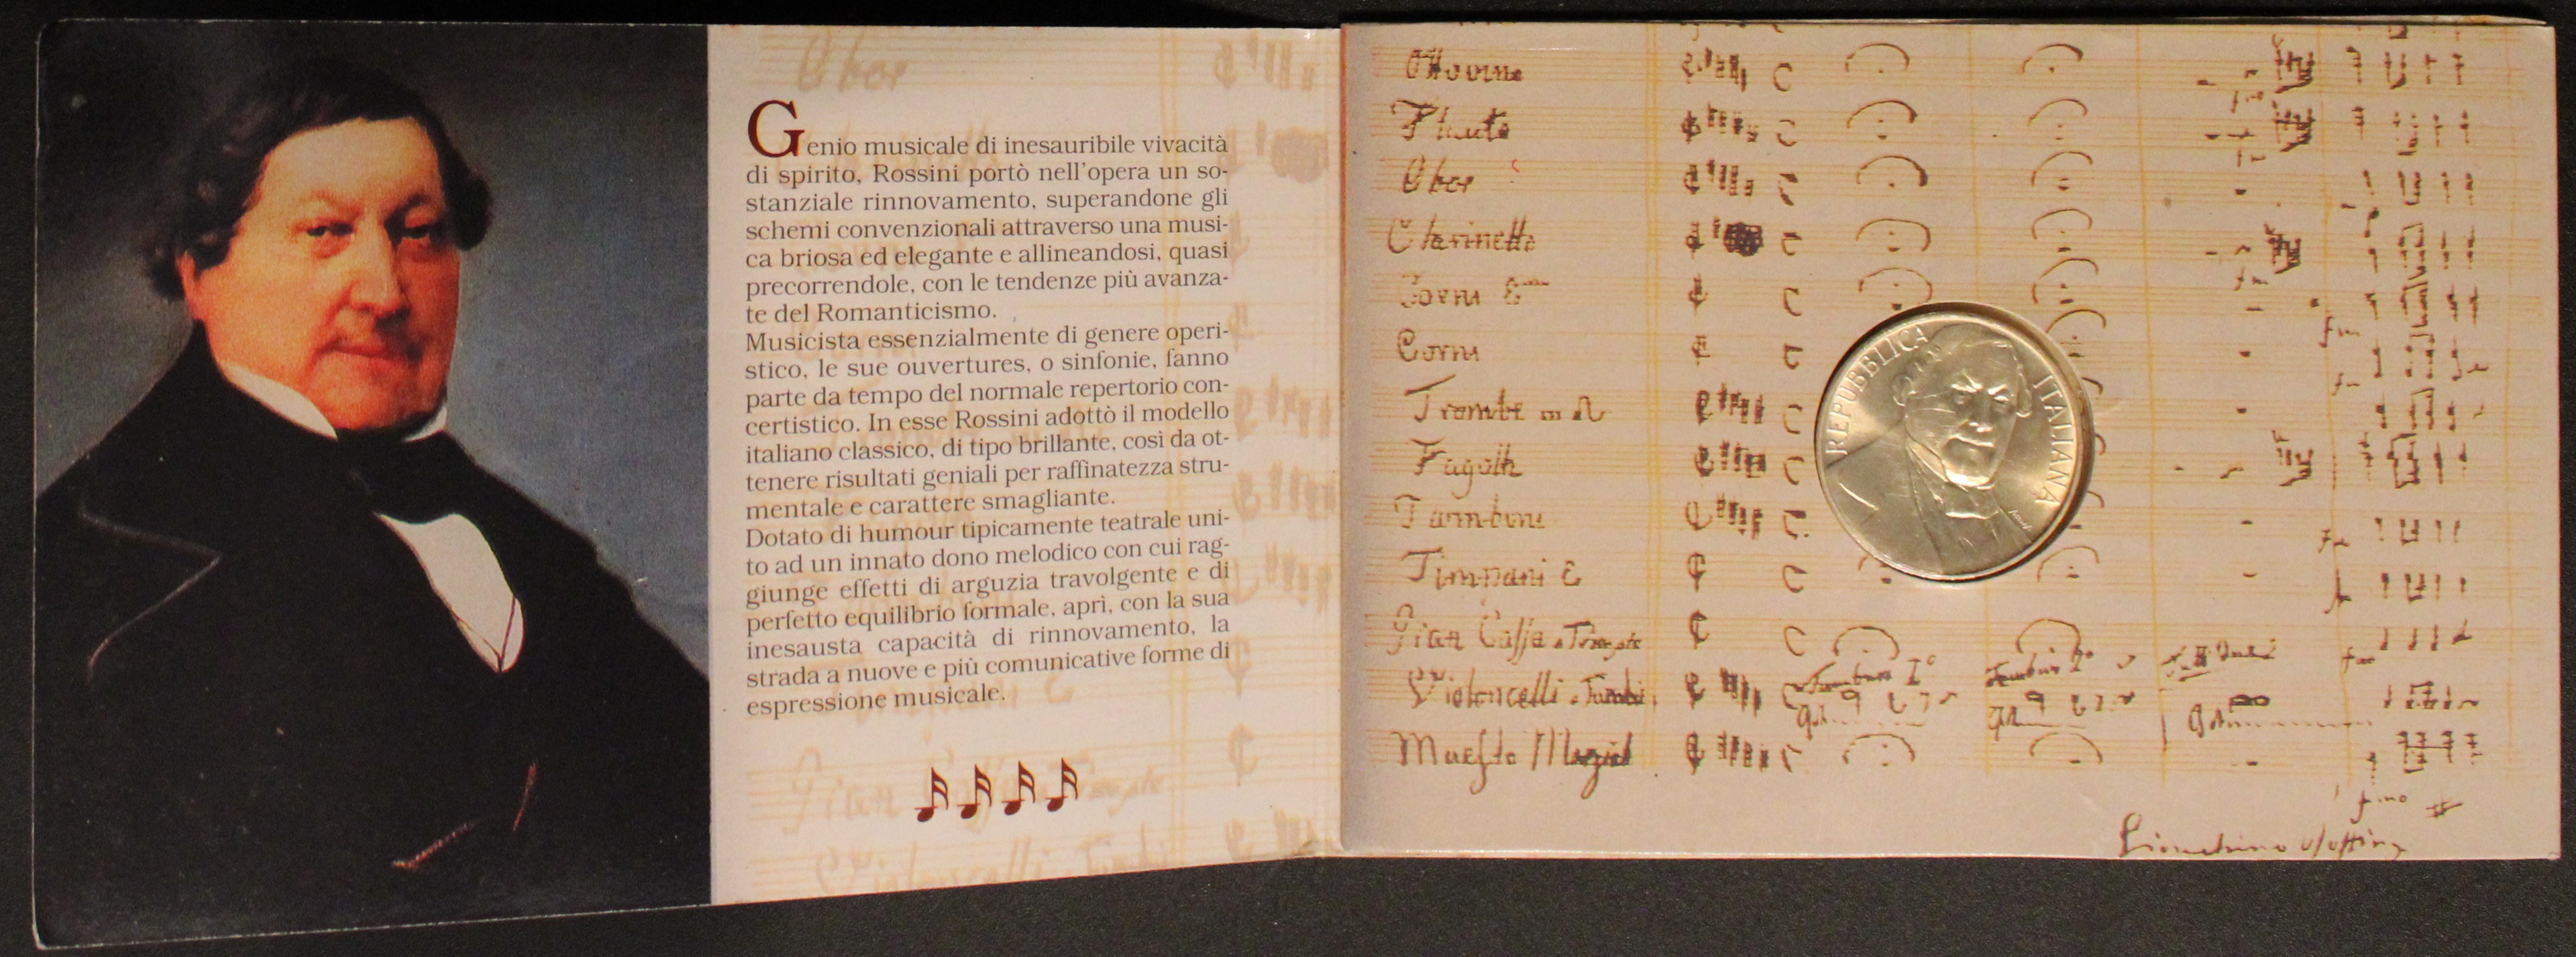 Genio musicale di inesauribile vivacità
di spirito, Rossini portò nell'opera un so-
stanziale rinnovamento, superandone gli
schemi convenzionali attraverso una musi-
ca briosa ed elegante e allineandosi, quasi
precorrendole, con le tendenze più avanza-
te del Romanticismo.
Musicista essenzialmente di genere operi-
stico, le sue ouvertures, o sinfonie, fanno
parte da tempo del normale repertorio con-
certistico. In esse Rossini adottò il modello
italiano classico, di tipo brillante, così da ot-
tenere risultati geniali per raffinatezza stru-
mentale e carattere smagliante.
Dotato di humour tipicamente teatrale uni-
to ad un innato dono melodico con cui rag-
giunge effetti di arguzia travolgente e di
perfetto equilibrio formale, aprì, con la sua
inesausta capacità di rinnovamento, la
strada a nuove e più comunicative forme di
espressione musicale.
Oboe
Clarinetto
Corni
Corni
Trombe in A
Fagotti
Timpani E
Gran Cassa
Violoncelli
REPUBBLICA ITALIANA